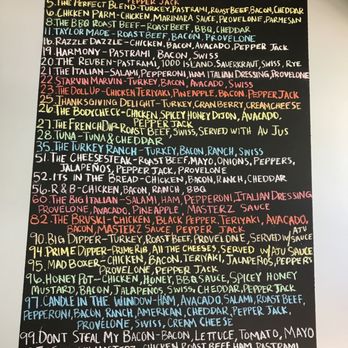 PEPPER JACK
5. THE PERFECT BLEND-TURKEY, PASTRAMI, ROAST BEEF, BACON, CHEDDAR
6. CHICKEN PARM-CHICKEN, MARINARA SAUCE, PROVELONE, PARMESAN
8. THE BBQ ROAST BEEF-ROAST BEEF, BBQ, CHEDDAR
11. TAYLOR MADE-ROAST BEEF, BACON, PROVELONE
16. RAZZLE DAZZLE-CHICKEN, BACON, AVOCADO, PEPPER JACK
19. HARMONY-PASTRAMI, BACON, SWISS
20. THE REUBEN-PASTRAMI, 1000 ISLAND, SAUERKRAUT, SWISS, RYE
21. THE ITALIAN-SALAMI, PEPPERONI, HAM, ITALIAN DRESSING, PROVELONE
22. STARVIN MARVIN-TURKEY, BACON, AVOCADO, SWISS
23. THE DOLL UP-CHICKEN, TERIYAKI, PINEAPPLE, BACON, PEPPER JACK
25. THANKSGIVING DELIGHT-TURKEY, CRANBERRY, CREAMCHEESE
26. THE BODYCHECK-CHICKEN, SPICEY HONEY DIJON, AVOCADO,
PEPPER JACK
27. THE FRENCH DIP-ROAST BEEF, SWISS, SERVED WITH AU JUS
28. TUNA-TUNA & CHEDDAR
35. THE TURKEY RANCH-TURKEY, BACON, RANCH, SWISS
51. THE CHEESESTEAK-ROAST BEEF, MAYO, ONIONS, PEPPERS,
JALAPEÑOS, PEPPER JACK, PROVELONE
52. ITS IN THE BREAD-CHICKEN, BACON, RANCH, CHEDDAR
56. R&B-CHICKEN, BACON, RANCH, BBQ
60. THE BIG ITALIAN-SALAMI, HAM, PEPPERONI, ITALIAN DRESSING
PROVELONE, AVOCADO, PINEAPPLE, MASTERZ SAUCE
82. THE BRUSKI-CHICKEN, BLACK PEPPER, TERIYAKI, AVOCADO,
BACON, MASTERZ SAUCE, PEPPER JACK
90. BIG DIPPER-TURKEY, ROAST BEEF, PROVELONE, SERVED W/ AJU
SAUCE
94. PRIME DIPPER-PRIME RIB, ALL THE CHEESES, SERVED W/ AJU
SAUCE
95. MAD BOXER-CHICKEN, BACON, TERIYAKI, JALAPEÑOS, PEPPERS
PROVELONE, PEPPER JACK
96. HONEY POT-CHICKEN, HONEY, BBQ SAUCE, SPICEY HONEY
MUSTARD, BACON, JALAPENOS, SWISS, CHEDDAR, PEPPER JACK
97. CANDLE IN THE WINDOW-HAM, AVOCADO, SALAMI, ROAST BEEF,
PEPPERONI, BACON, RANCH, AMERICAN, CHEDDAR, PEPPER JACK,
PROVELONE, SWISS, CREAM CHEESE
99. DONT STEAL MY BACON-BACON, LETTUCE, TOMATO, MAYO